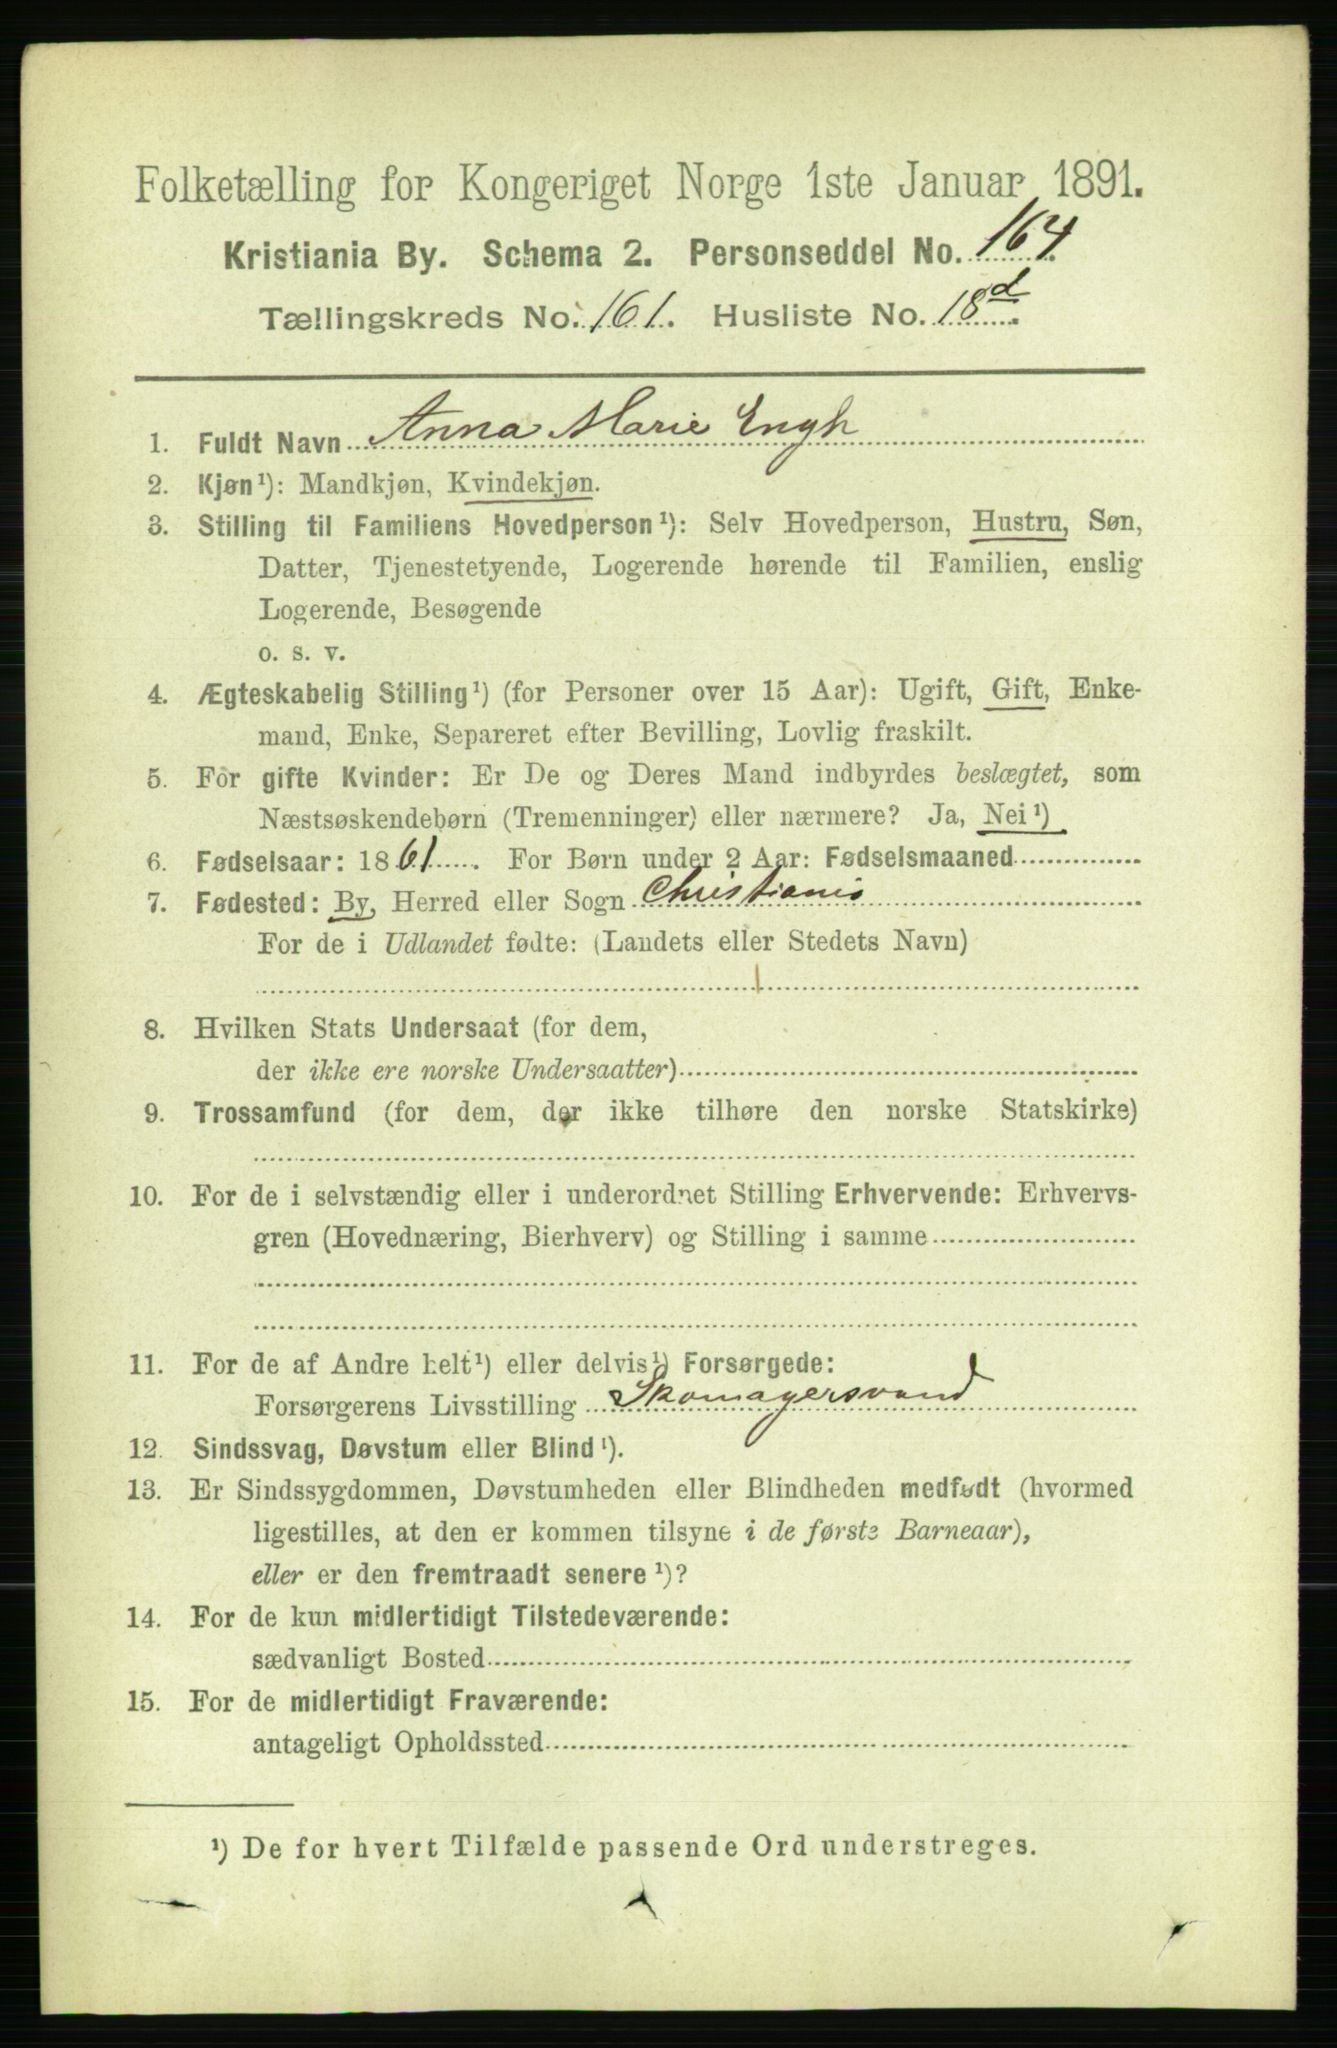 Folketælling for Kongeriget Norge 1ste Januar 1891.
Kristiania By. Schema 2. Personseddel No. 164
Tællingskreds No. 161. Husliste No. 18d
1. Fuldt Navn Anna Marie Engh
2. Kjøn¹): Mandkjøn, Kvindekjøn.
3. Stilling til Familiens Hovedperson¹): Selv Hovedperson, Hustru, Søn,
Datter, Tjenestetyende, Logerende hørende til Familien, enslig
Logerende, Besøgende
o. s. v.
4. Ægteskabelig Stilling¹) (for Personer over 15 Aar): Ugift, Gift, Enke-
mand, Enke, Separeret efter Bevilling, Lovlig fraskilt.
5. For gifte Kvinder: Er De og Deres Mand indbyrdes beslægtet, som
Næstsøskendebørn (Tremenninger) eller nærmere? Ja, Nei¹)
6. Fødselsaar: 1861. For Børn under 2 Aar: Fødselsmaaned
7. Fødested: By, Herred eller Sogn Christiania
For de i Udlandet fødte: (Landets eller Stedets Navn)
8. Hvilken Stats Undersaat (for dem,
der ikke ere norske Undersaatter)
9. Trossamfund (for dem, der ikke tilhøre den norske Statskirke)
10. For de i selvstændig eller i underordnet Stilling Erhvervende: Erhvervs-
gren (Hovednæring, Bierhverv) og Stilling i samme
11. For de af Andre helt¹) eller delvis¹) Forsørgede:
Forsørgerens Livsstilling Skomagersvend
12. Sindssvag, Døvstum eller Blind¹).
13. Er Sindssygdommen, Døvstumheden eller Blindheden medfødt (hvormed
ligestilles, at den er kommen tilsyne i de første Barneaar),
eller er den fremtraadt senere¹)?
14. For de kun midlertidigt Tilstedeværende:
sædvanligt Bosted
15. For de midlertidigt Fraværende:
antageligt Opholdssted
¹) De for hvert Tilfælde passende Ord understreges.